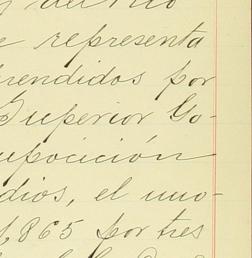 del Río
e representa
rendidos por
Superior Go-
uposición
dios, el uno-
1,865 por tres